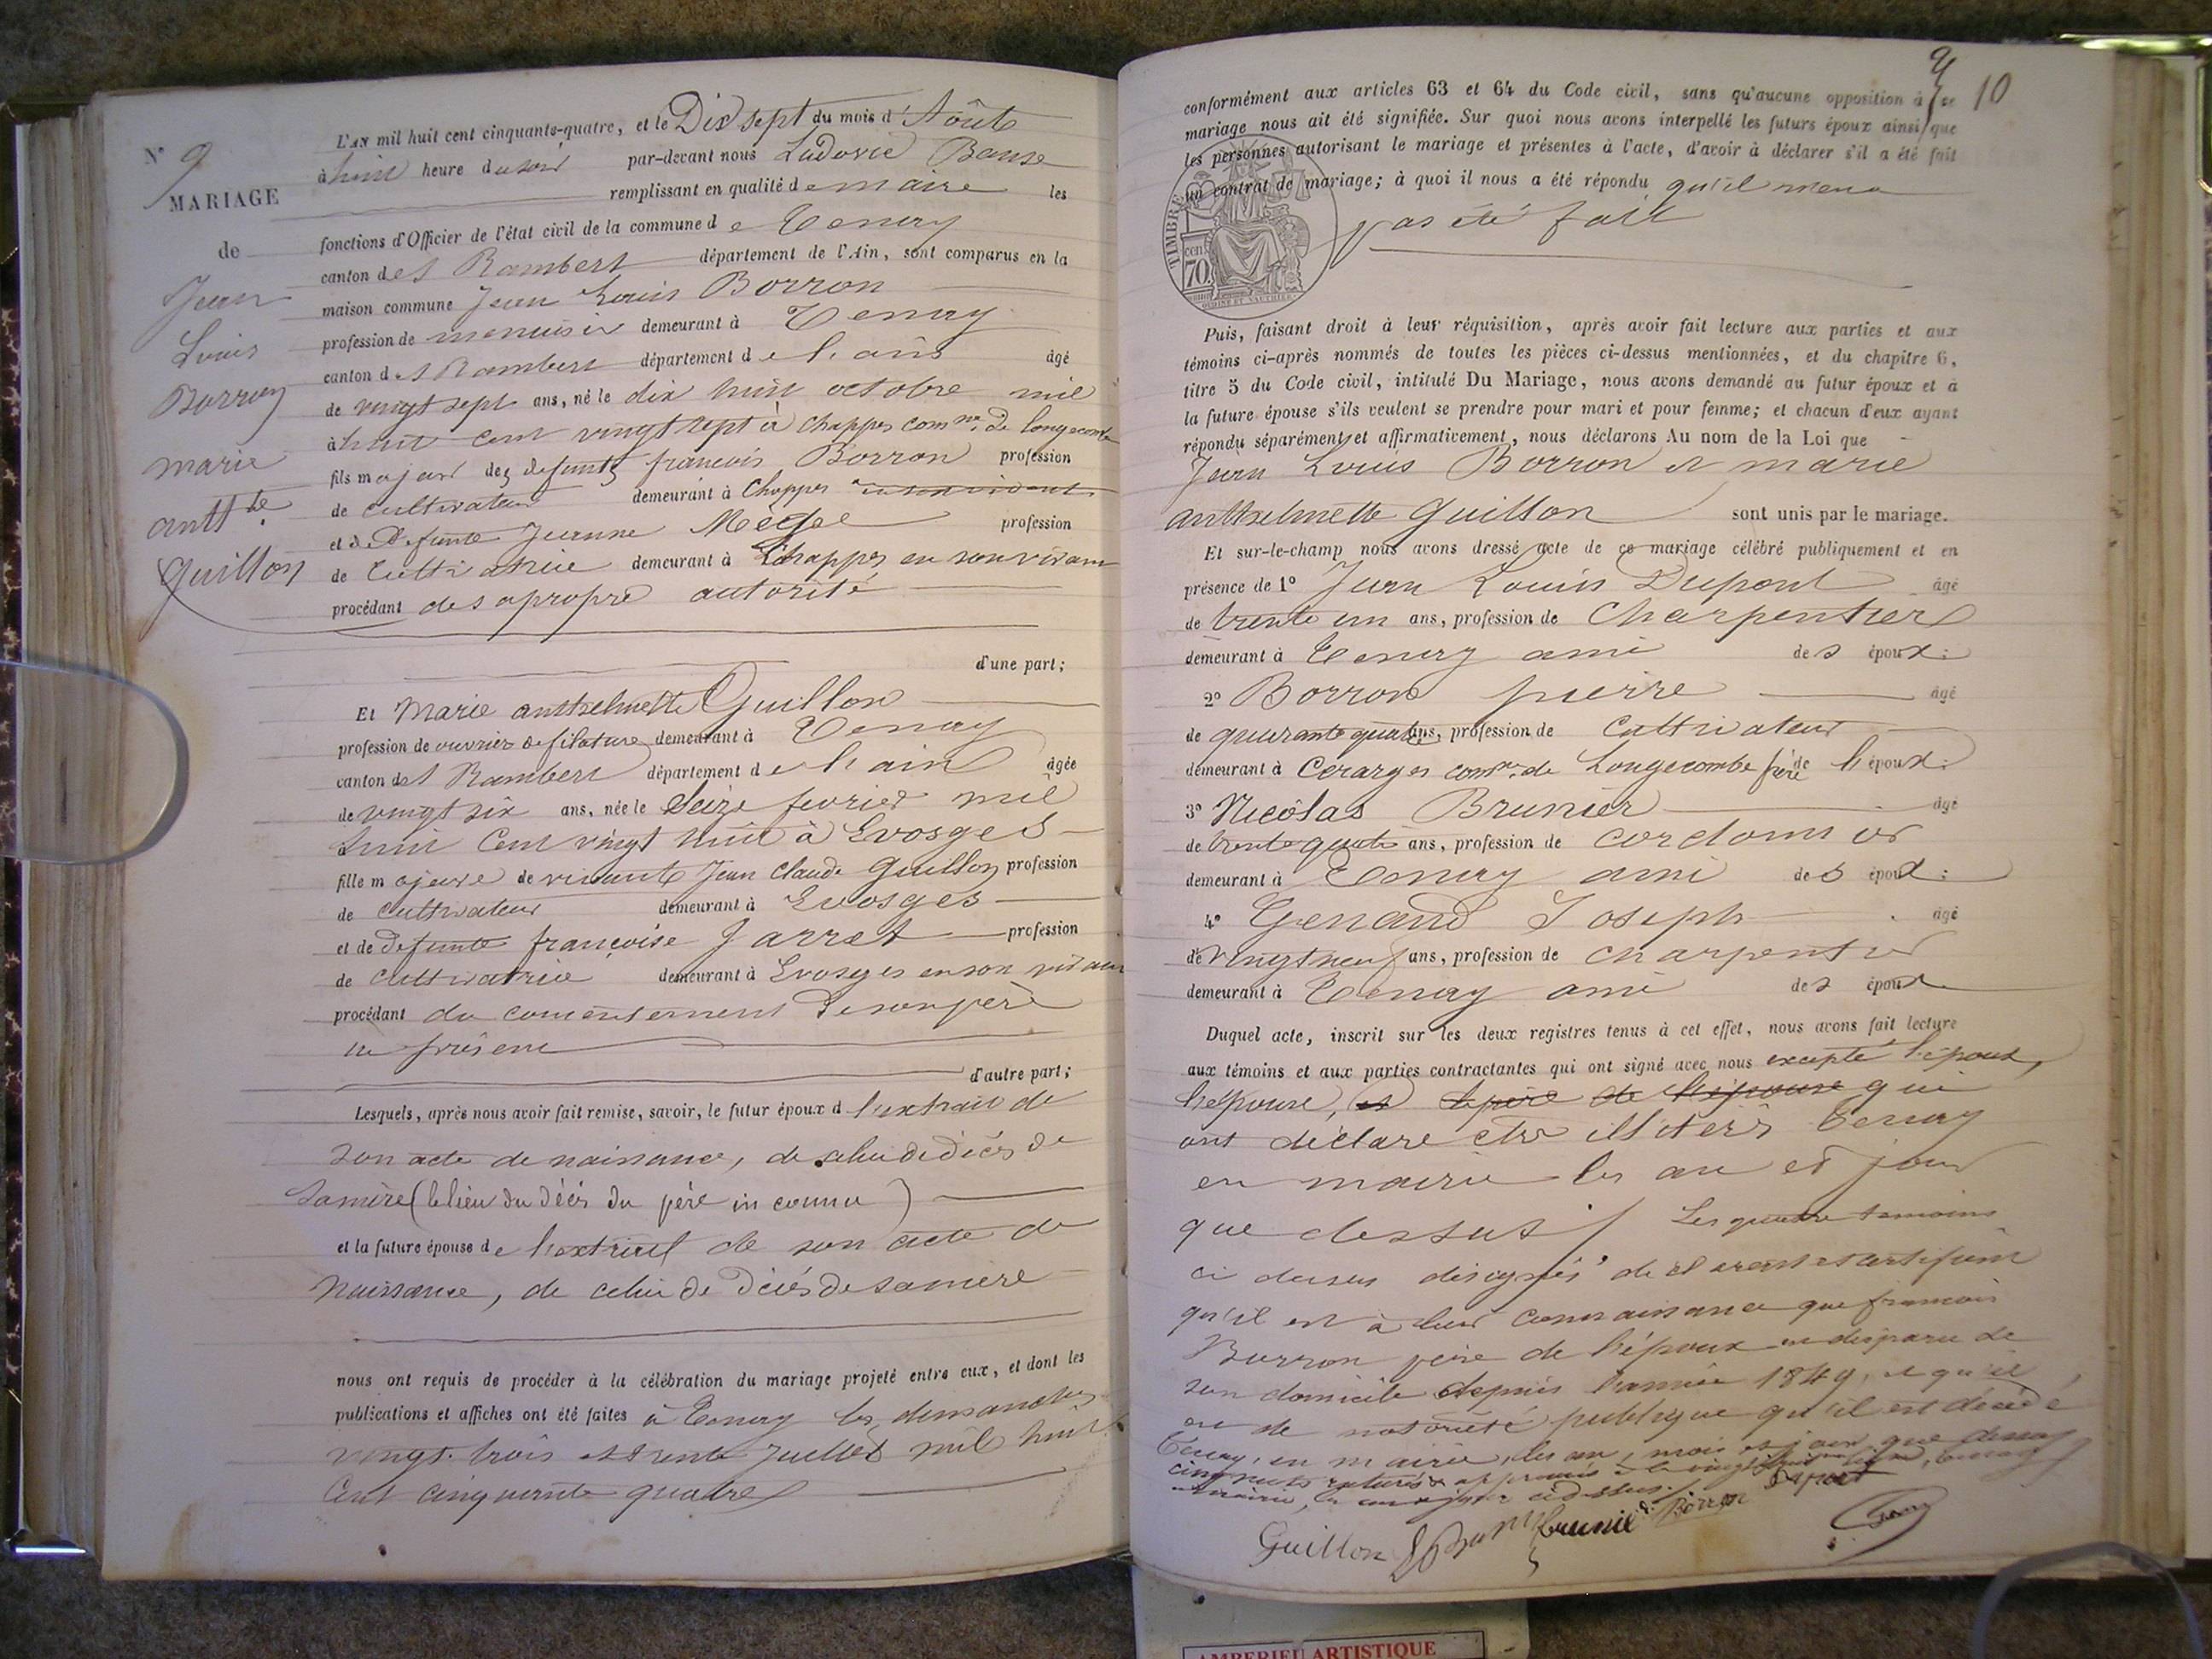 N° 9
MARIAGE
de
Jean
Louis
Borron
marie
antt.te
Guillon
L'AN mil huit cent cinquante-quatre, et le Dix sept du mois d'Aôute
à huit heure du soir par-devant nous Ludovic
remplissant en qualité de maire les
fonctions d'Officier de l'état civil de la commune de Tenay
canton de St Rambert département de l'Ain, sont comparus en la
maison commune Jean Louis Borron
profession de menuisier demeurant à Tenay
canton de St Rambert département de l'ain âgé
de vingt sept ans, né le dix huit octobre mil
à huit cent vingt sept à Chappes comne. de longecombe
fils majeur des defunts francois Borron profession
de cultivateur demeurant à Chappes
et de Defunte Jeanne profession
de Cultivatrice demeurant à Chappes en son vivant
procédant de sa propre autorité
d'une part;
Et Marie antthelmette Guillon
profession de ouvrière de filature demeurant à Tenay
canton de St Rambert département de l'ain âgée
de vingt six ans, née le Seize fevrier mil
huit Cent vingt huit à Evosges
fille majeure de vivante Jean Claude Guillon profession
de cultivateur demeurant à Evosges
et de defunte françoise Jarret profession
de cultivatrice demeurant à Evosges en son vivant
procédant du consentement de son père
ici présent
d'autre part;
Lesquels, après nous avoir fait remise, savoir, le futur époux d l'extrait de
son acte de naissance, de celui de décès de
sa mère (le lieu du décès du père in connu)
et la future épouse de l'extrait de son acte de
Naissance, de celui de Décés de sa mère
nous ont requis de procéder à la célébration du mariage projeté entre eux, et dont les
publications et affiches ont été faites à Tenay les dimanches
vingt-trois et trente Juillet mil huit
Cent cinquante quatre
10
conformément aux articles 63 et 64 du Code civil, sans qu'aucune opposition à ce
mariage nous ait été signifiée. Sur quoi nous avons interpellé les futurs époux ainsi que
les personnes autorisant le mariage et présentes à l'acte, d'avoir à déclarer s'il a été fait
un contrat de mariage; à quoi il nous a été répondu qu'il n'en a
pas été fait
TIMBRE
cen
70.
Puis, faisant droit à leur réquisition, après avoir fait lecture aux parties et aux
témoins ci-après nommés de toutes les pièces ci-dessus mentionnées, et du chapitre 6,
titre 5 du Code civil, intitulé Du Mariage, nous avons demandé au futur époux et à
la future épouse s'ils veulent se prendre pour mari et pour femme; et chacun d'eux ayant
répondu séparément et affirmativement, nous déclarons Au nom de la Loi que
Jean Louis Borron et marie
antthelmette Guillon sont unis par le mariage.
Et sur-le-champ nous avons dressé acte de ce mariage célébré publiquement et en
présence de 1° Jean Louis Dupont âgé
de trente un ans, profession de Charpentier
demeurant à Tenay ami des époux;
2° Borron pierre âgé
de quarante quatre ans, profession de Cultivateur
demeurant à comne. de Longecombe frère de l'époux;
3° Nicôlas Brunier âgé
de trente quatre ans, profession de cordonnier
demeurant à Tenay ami des époux;
4° Genand Joseph âgé
de vingt neuf ans, profession de charpentier
demeurant à Tenay ami des époux
Duquel acte, inscrit sur les deux registres tenus à cet effet, nous avons fait lecture
aux témoins et aux parties contractantes qui ont signé avec nous excepté l'époux,
l'espouse, et le père de l'épouse qui
ont déclare etre illitérés Tenay
en mairie les an et jour
que dessus Les quatre temoins
ci dessus désignés déclarent et certifient
qu'il est à leur connaissance que francois
Borron père de l'époux est disparu de
son domicile depuis l'année 1849, et qu'il
est de notoriété publique qu'il est décédé
Tenay, en mairie, les an, mois et jour que dessus
cinq mots raturés
Guillon Brunier Borron Dupont
AMBERIEU ARTISTIQUE